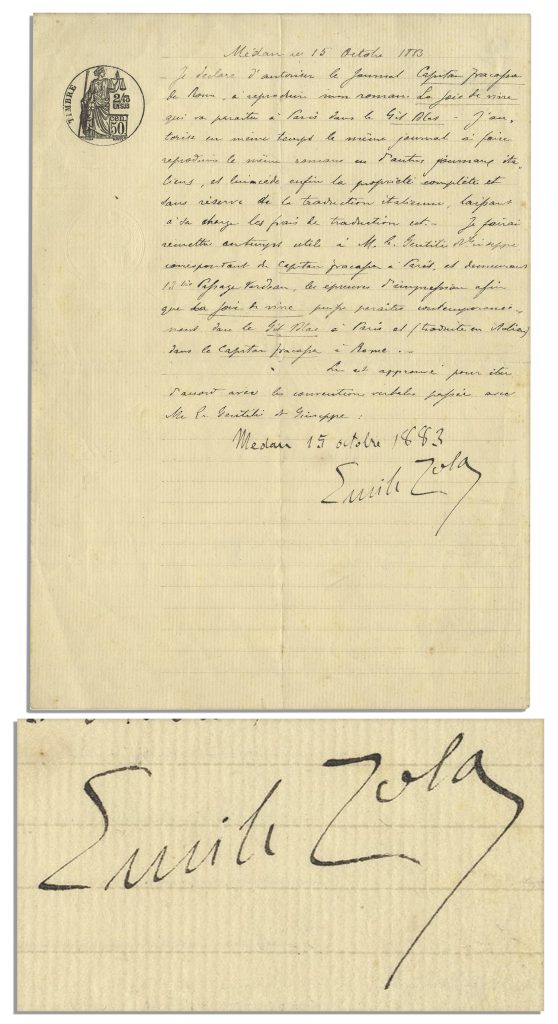 Médan ce 15 Octobre 1883
TIMBRE
2/10 EN SUS
50 CEN.
Je déclare d'autoriser le Journal Capitan Fracassa
de Rome, à reproduire mon roman: La Joie de vivre
qui va paraître à Paris dans le Gil Blas – J'au-
torise en même temps le même journal à faire
reproduire le même romans en d'autres journaux ita-
liens, et lui cède enfin la propriété complète et
sans réserve de la traduction italienne, laissant
à sa charge les frais de traduction – Je ferai
remettre en temps utile à M. E. Gentili
correspondant du Capitan Fracassa à Paris, et demeurant
Passage Verdeau, les épreuves d'impression afin
que La Joie de vivre puisse paraître contemporané-
ment dans le Gil Blas à Paris et (traduite en Italien)
dans le Capitan Fracassa à Rome. –
Lu et approuvé pour être
d'accord avec les convention verbales passée avec
Mr Gentili Giuseppe :
Médan 15 octobre 1883
Emile Zola
Emile Zola